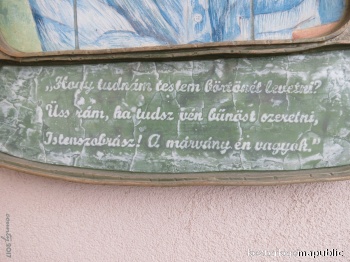 „Hogy tudnám testem börtönét levetni?
Üss rám, ha tudsz vén bűnöst szeretni,
Istenszobrász! A márvány én vagyok."